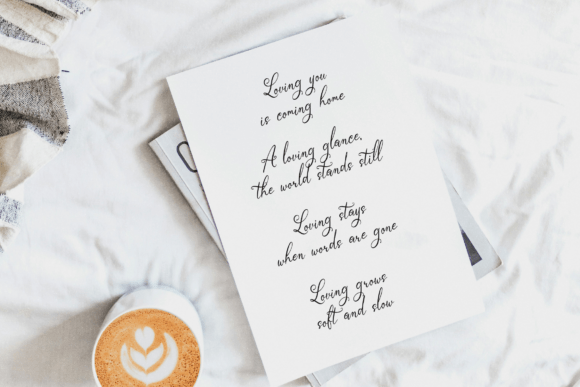 Loving you
is coming home
A loving glance,
the world stands still
Loving stays
when words are gone
Loving grows
soft and slow